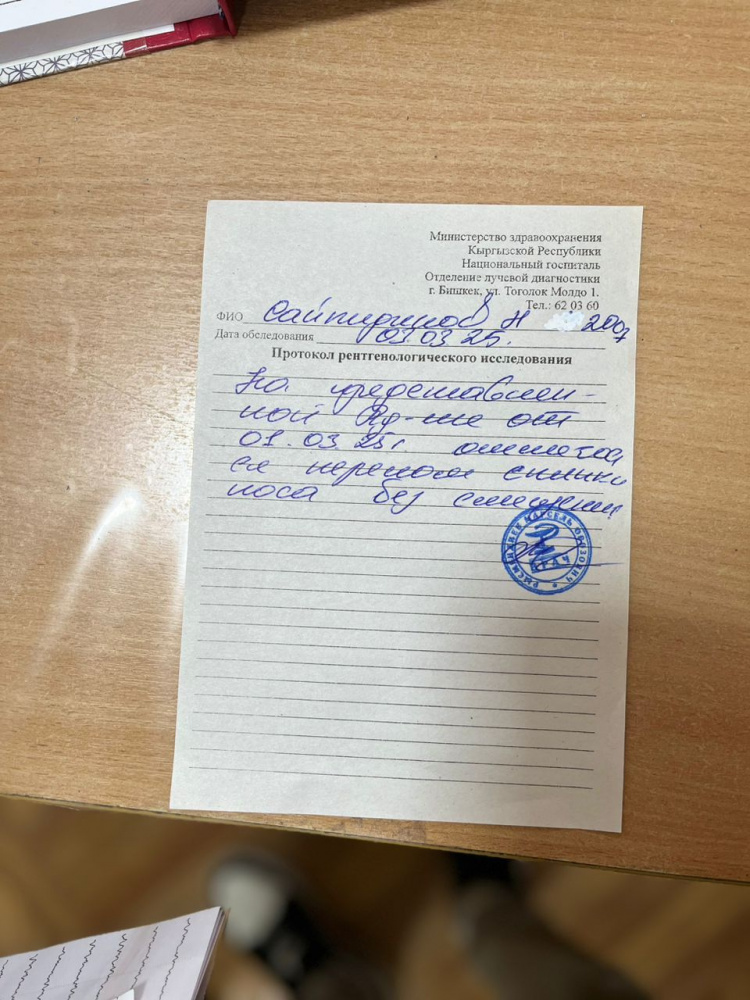 Министерство здравоохранения
Кыргызской Республики
Национальный госпиталь
Отделение лучевой диагностики
г. Бишкек, ул. Тоголок Молдо 1.
Тел.: 62 03 60
ФИО Н 2007
Дата обследования 03.03 25.
Протокол рентгенологического исследования
На представлен-
ной Rg-ме от
01.03.25г. отмечает
ся перелом спинки
носа без смещения
ВРАЧ